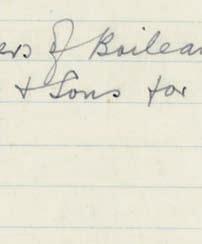 ers of Boilea
& Sons for